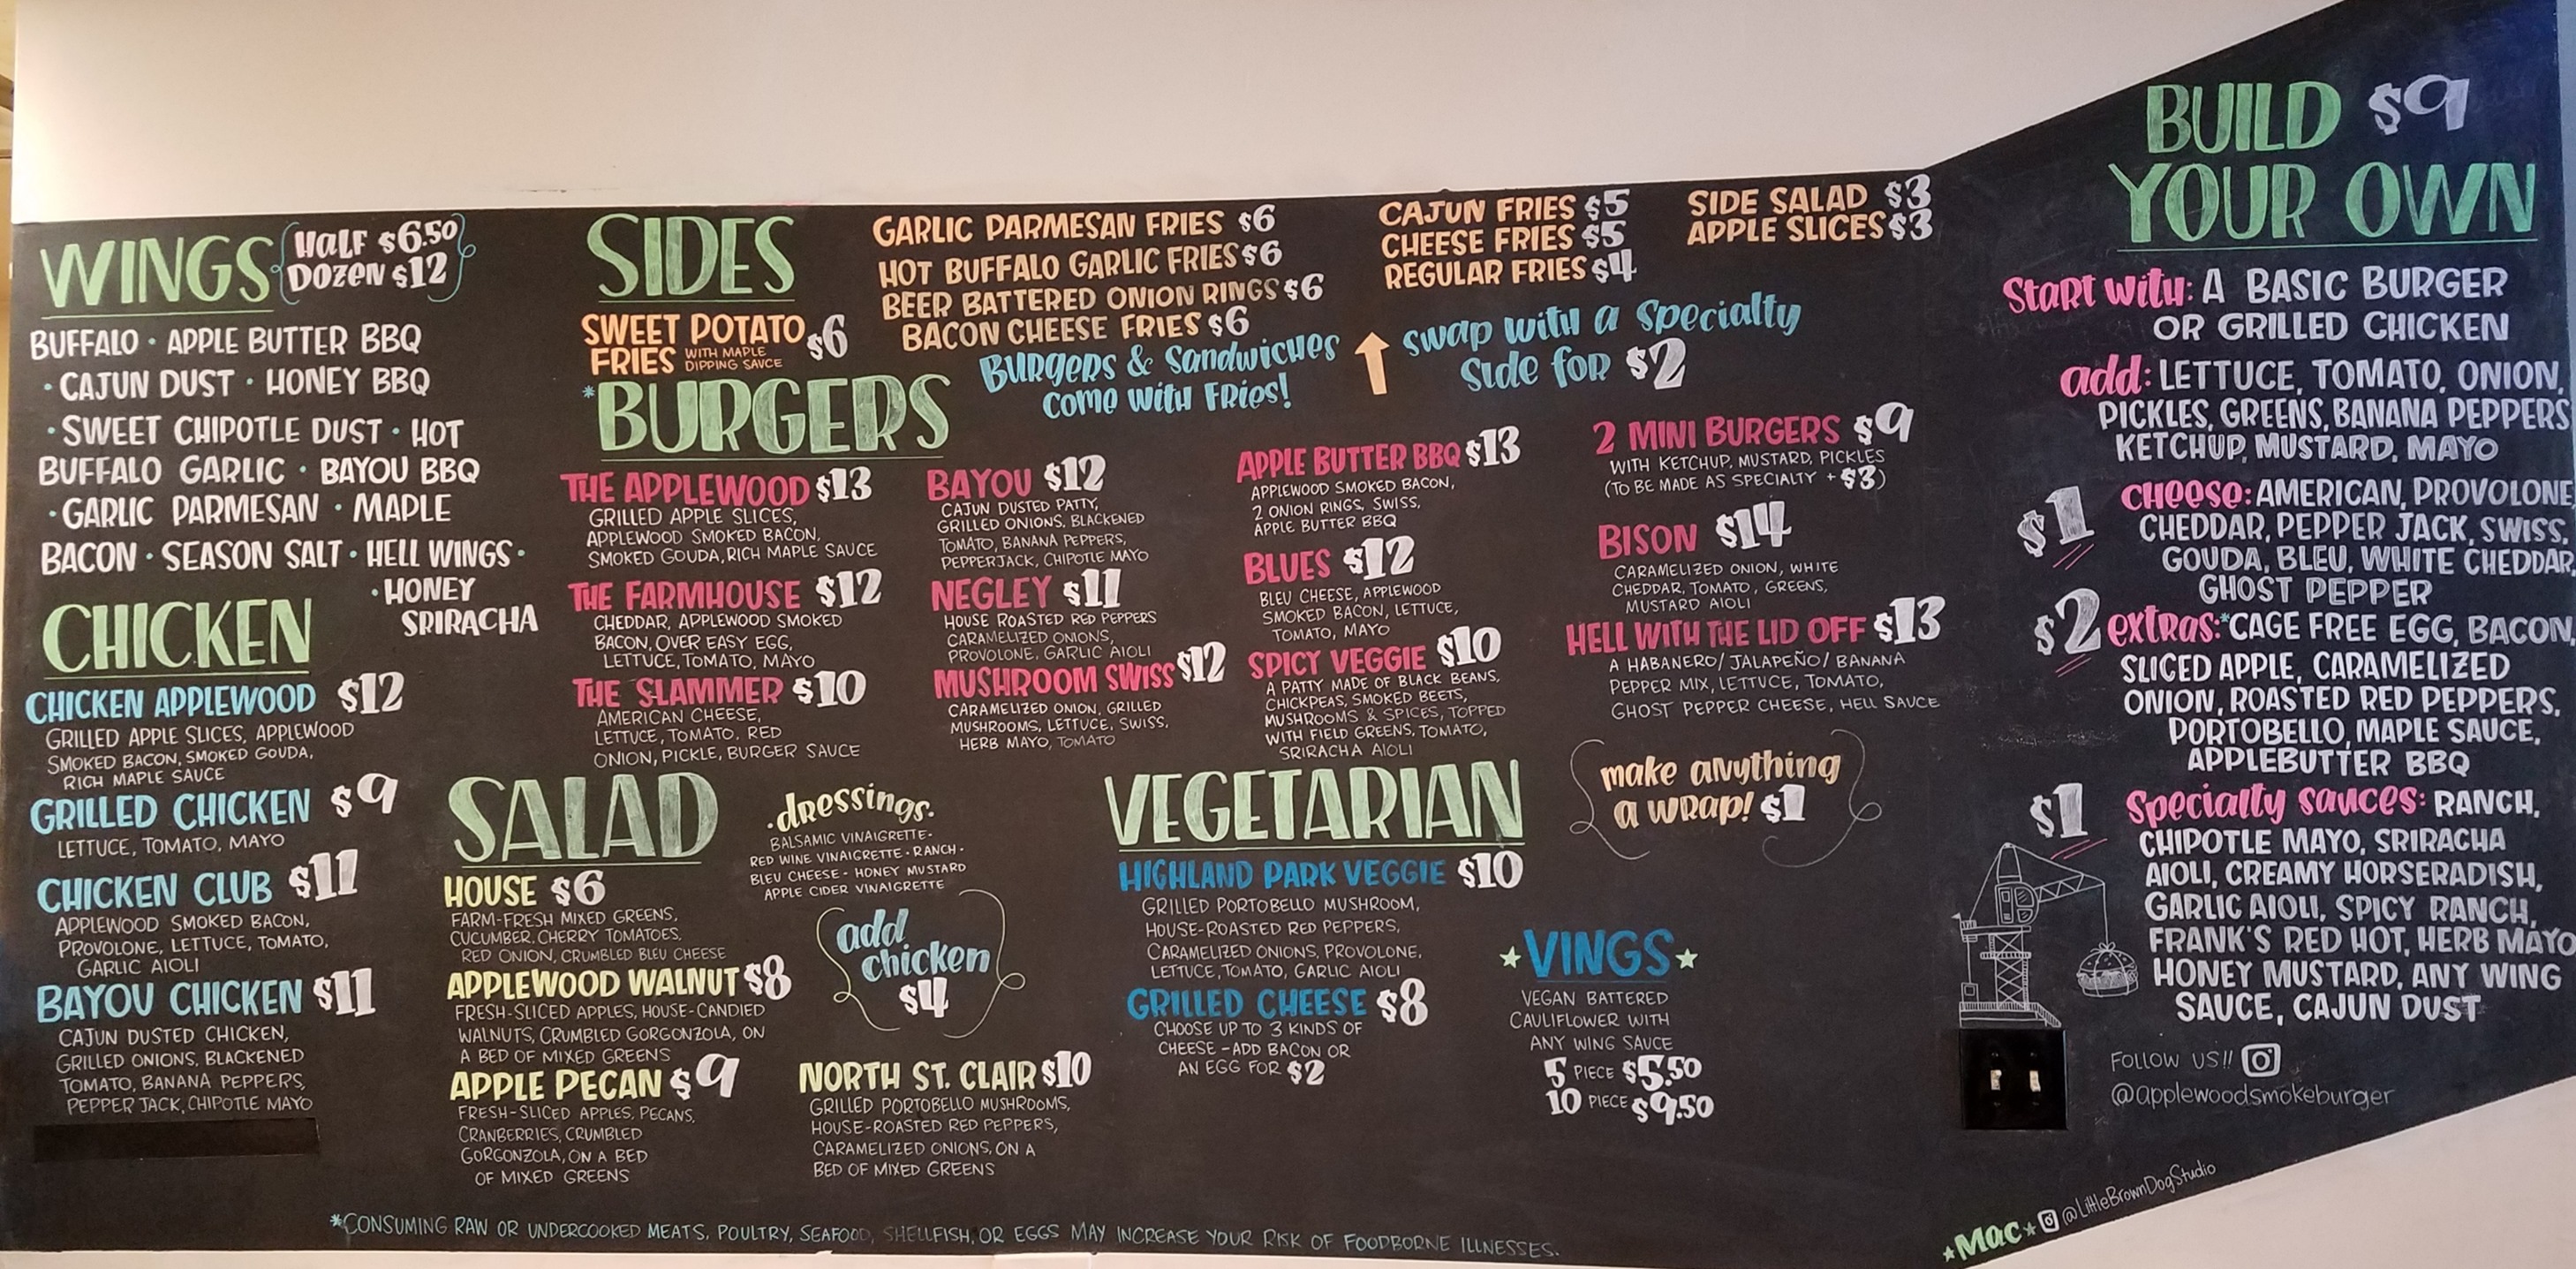 WINGS
HALF $6.50
DOZEN $12
BUFFALO · APPLE BUTTER BBQ
· CAJUN DUST · HONEY BBQ
· SWEET CHIPOTLE DUST · HOT
BUFFALO GARLIC · BAYOU BBQ
· GARLIC PARMESAN · MAPLE
BACON · SEASON SALT · HELL WINGS ·
· HONEY
SRIRACHA
CHICKEN
CHICKEN APPLEWOOD $12
GRILLED APPLE SLICES, APPLEWOOD
SMOKED BACON, SMOKED GOUDA,
RICH MAPLE SAUCE
GRILLED CHICKEN $9
LETTUCE, TOMATO, MAYO
CHICKEN CLUB $11
APPLEWOOD SMOKED BACON,
PROVOLONE, LETTUCE, TOMATO,
GARLIC AIOLI
BAYOU CHICKEN $11
CAJUN DUSTED CHICKEN,
GRILLED ONIONS, BLACKENED
TOMATO, BANANA PEPPERS,
PEPPER JACK, CHIPOTLE MAYO
SIDES
SWEET POTATO
FRIES WITH MAPLE
DIPPING SAUCE $6
GARLIC PARMESAN FRIES $6
HOT BUFFALO GARLIC FRIES $6
BEER BATTERED ONION RINGS $6
BACON CHEESE FRIES $6
CAJUN FRIES $5
CHEESE FRIES $5
REGULAR FRIES $4
SIDE SALAD $3
APPLE SLICES $3
BURGERS & SANDWICHES
COME WITH FRIES!
SWAP WITH A SPECIALTY
SIDE FOR $2
*BURGERS
THE APPLEWOOD $13
GRILLED APPLE SLICES,
APPLEWOOD SMOKED BACON,
SMOKED GOUDA, RICH MAPLE SAUCE
THE FARMHOUSE $12
CHEDDAR, APPLEWOOD SMOKED
BACON, OVER EASY EGG,
LETTUCE, TOMATO, MAYO
THE SLAMMER $10
AMERICAN CHEESE,
LETTUCE, TOMATO, RED
ONION, PICKLE, BURGER SAUCE
BAYOU $12
CAJUN DUSTED PATTY,
GRILLED ONIONS, BLACKENED
TOMATO, BANANA PEPPERS,
PEPPERJACK, CHIPOTLE MAYO
NEGLEY $11
HOUSE ROASTED RED PEPPERS
CARAMELIZED ONIONS,
PROVOLONE, GARLIC AIOLI
MUSHROOM SWISS $12
CARAMELIZED ONION, GRILLED
MUSHROOMS, LETTUCE, SWISS,
HERB MAYO, TOMATO
APPLE BUTTER BBQ $13
APPLEWOOD SMOKED BACON,
2 ONION RINGS, SWISS,
APPLE BUTTER BBQ
BLUES $12
BLEU CHEESE, APPLEWOOD
SMOKED BACON, LETTUCE,
TOMATO, MAYO
SPICY VEGGIE $10
A PATTY MADE OF BLACK BEANS,
CHICKPEAS, SMOKED BEETS,
MUSHROOMS & SPICES, TOPPED
WITH FIELD GREENS, TOMATO,
SRIRACHA AIOLI
2 MINI BURGERS $9
WITH KETCHUP, MUSTARD, PICKLES
(TO BE MADE AS SPECIALTY + $3)
BISON $14
CARAMELIZED ONION, WHITE
CHEDDAR, TOMATO, GREENS,
MUSTARD AIOLI
HELL WITH THE LID OFF $13
A HABANERO/ JALAPEÑO/ BANANA
PEPPER MIX, LETTUCE, TOMATO,
GHOST PEPPER CHEESE, HELL SAUCE
make anything
a wrap! $1
SALAD
HOUSE $6
FARM-FRESH MIXED GREENS,
CUCUMBER, CHERRY TOMATOES,
RED ONION, CRUMBLED BLEU CHEESE
APPLEWOOD WALNUT $8
FRESH-SLICED APPLES, HOUSE-CANDIED
WALNUTS, CRUMBLED GORGONZOLA, ON
A BED OF MIXED GREENS
APPLE PECAN $9
FRESH-SLICED APPLES, PECANS,
CRANBERRIES, CRUMBLED
GORGONZOLA, ON A BED
OF MIXED GREENS
·dressings·
BALSAMIC VINAIGRETTE·
RED WINE VINAIGRETTE · RANCH ·
BLEU CHEESE · HONEY MUSTARD
APPLE CIDER VINAIGRETTE
add
chicken
$4
NORTH ST. CLAIR $10
GRILLED PORTOBELLO MUSHROOMS,
HOUSE-ROASTED RED PEPPERS,
CARAMELIZED ONIONS, ON A
BED OF MIXED GREENS
VEGETARIAN
HIGHLAND PARK VEGGIE $10
GRILLED PORTOBELLO MUSHROOM,
HOUSE-ROASTED RED PEPPERS,
CARAMELIZED ONIONS, PROVOLONE,
LETTUCE, TOMATO, GARLIC AIOLI
GRILLED CHEESE $8
CHOOSE UP TO 3 KINDS OF
CHEESE - ADD BACON OR
AN EGG FOR $2
VINGS
VEGAN BATTERED
CAULIFLOWER WITH
ANY WING SAUCE
5 PIECE $5.50
10 PIECE $9.50
BUILD $9
YOUR OWN
Start with: A BASIC BURGER
OR GRILLED CHICKEN
add: LETTUCE, TOMATO, ONION,
PICKLES, GREENS, BANANA PEPPERS
KETCHUP, MUSTARD, MAYO
$1 cheese: AMERICAN, PROVOLONE
CHEDDAR, PEPPER JACK, SWISS,
GOUDA, BLEU, WHITE CHEDDAR,
GHOST PEPPER
$2 extras: *CAGE FREE EGG, BACON,
SLICED APPLE, CARAMELIZED
ONION, ROASTED RED PEPPERS,
PORTOBELLO, MAPLE SAUCE,
APPLEBUTTER BBQ
$1 Specialty sauces: RANCH,
CHIPOTLE MAYO, SRIRACHA
AIOLI, CREAMY HORSERADISH,
GARLIC AIOLI, SPICY RANCH,
FRANK'S RED HOT, HERB MAYO
HONEY MUSTARD, ANY WING
SAUCE, CAJUN DUST
FOLLOW US!!
@applewoodsmokeburger
*CONSUMING RAW OR UNDERCOOKED MEATS, POULTRY, SEAFOOD, SHELLFISH, OR EGGS MAY INCREASE YOUR RISK OF FOODBORNE ILLNESSES.
*Mac* @LittleBrownDogStudio